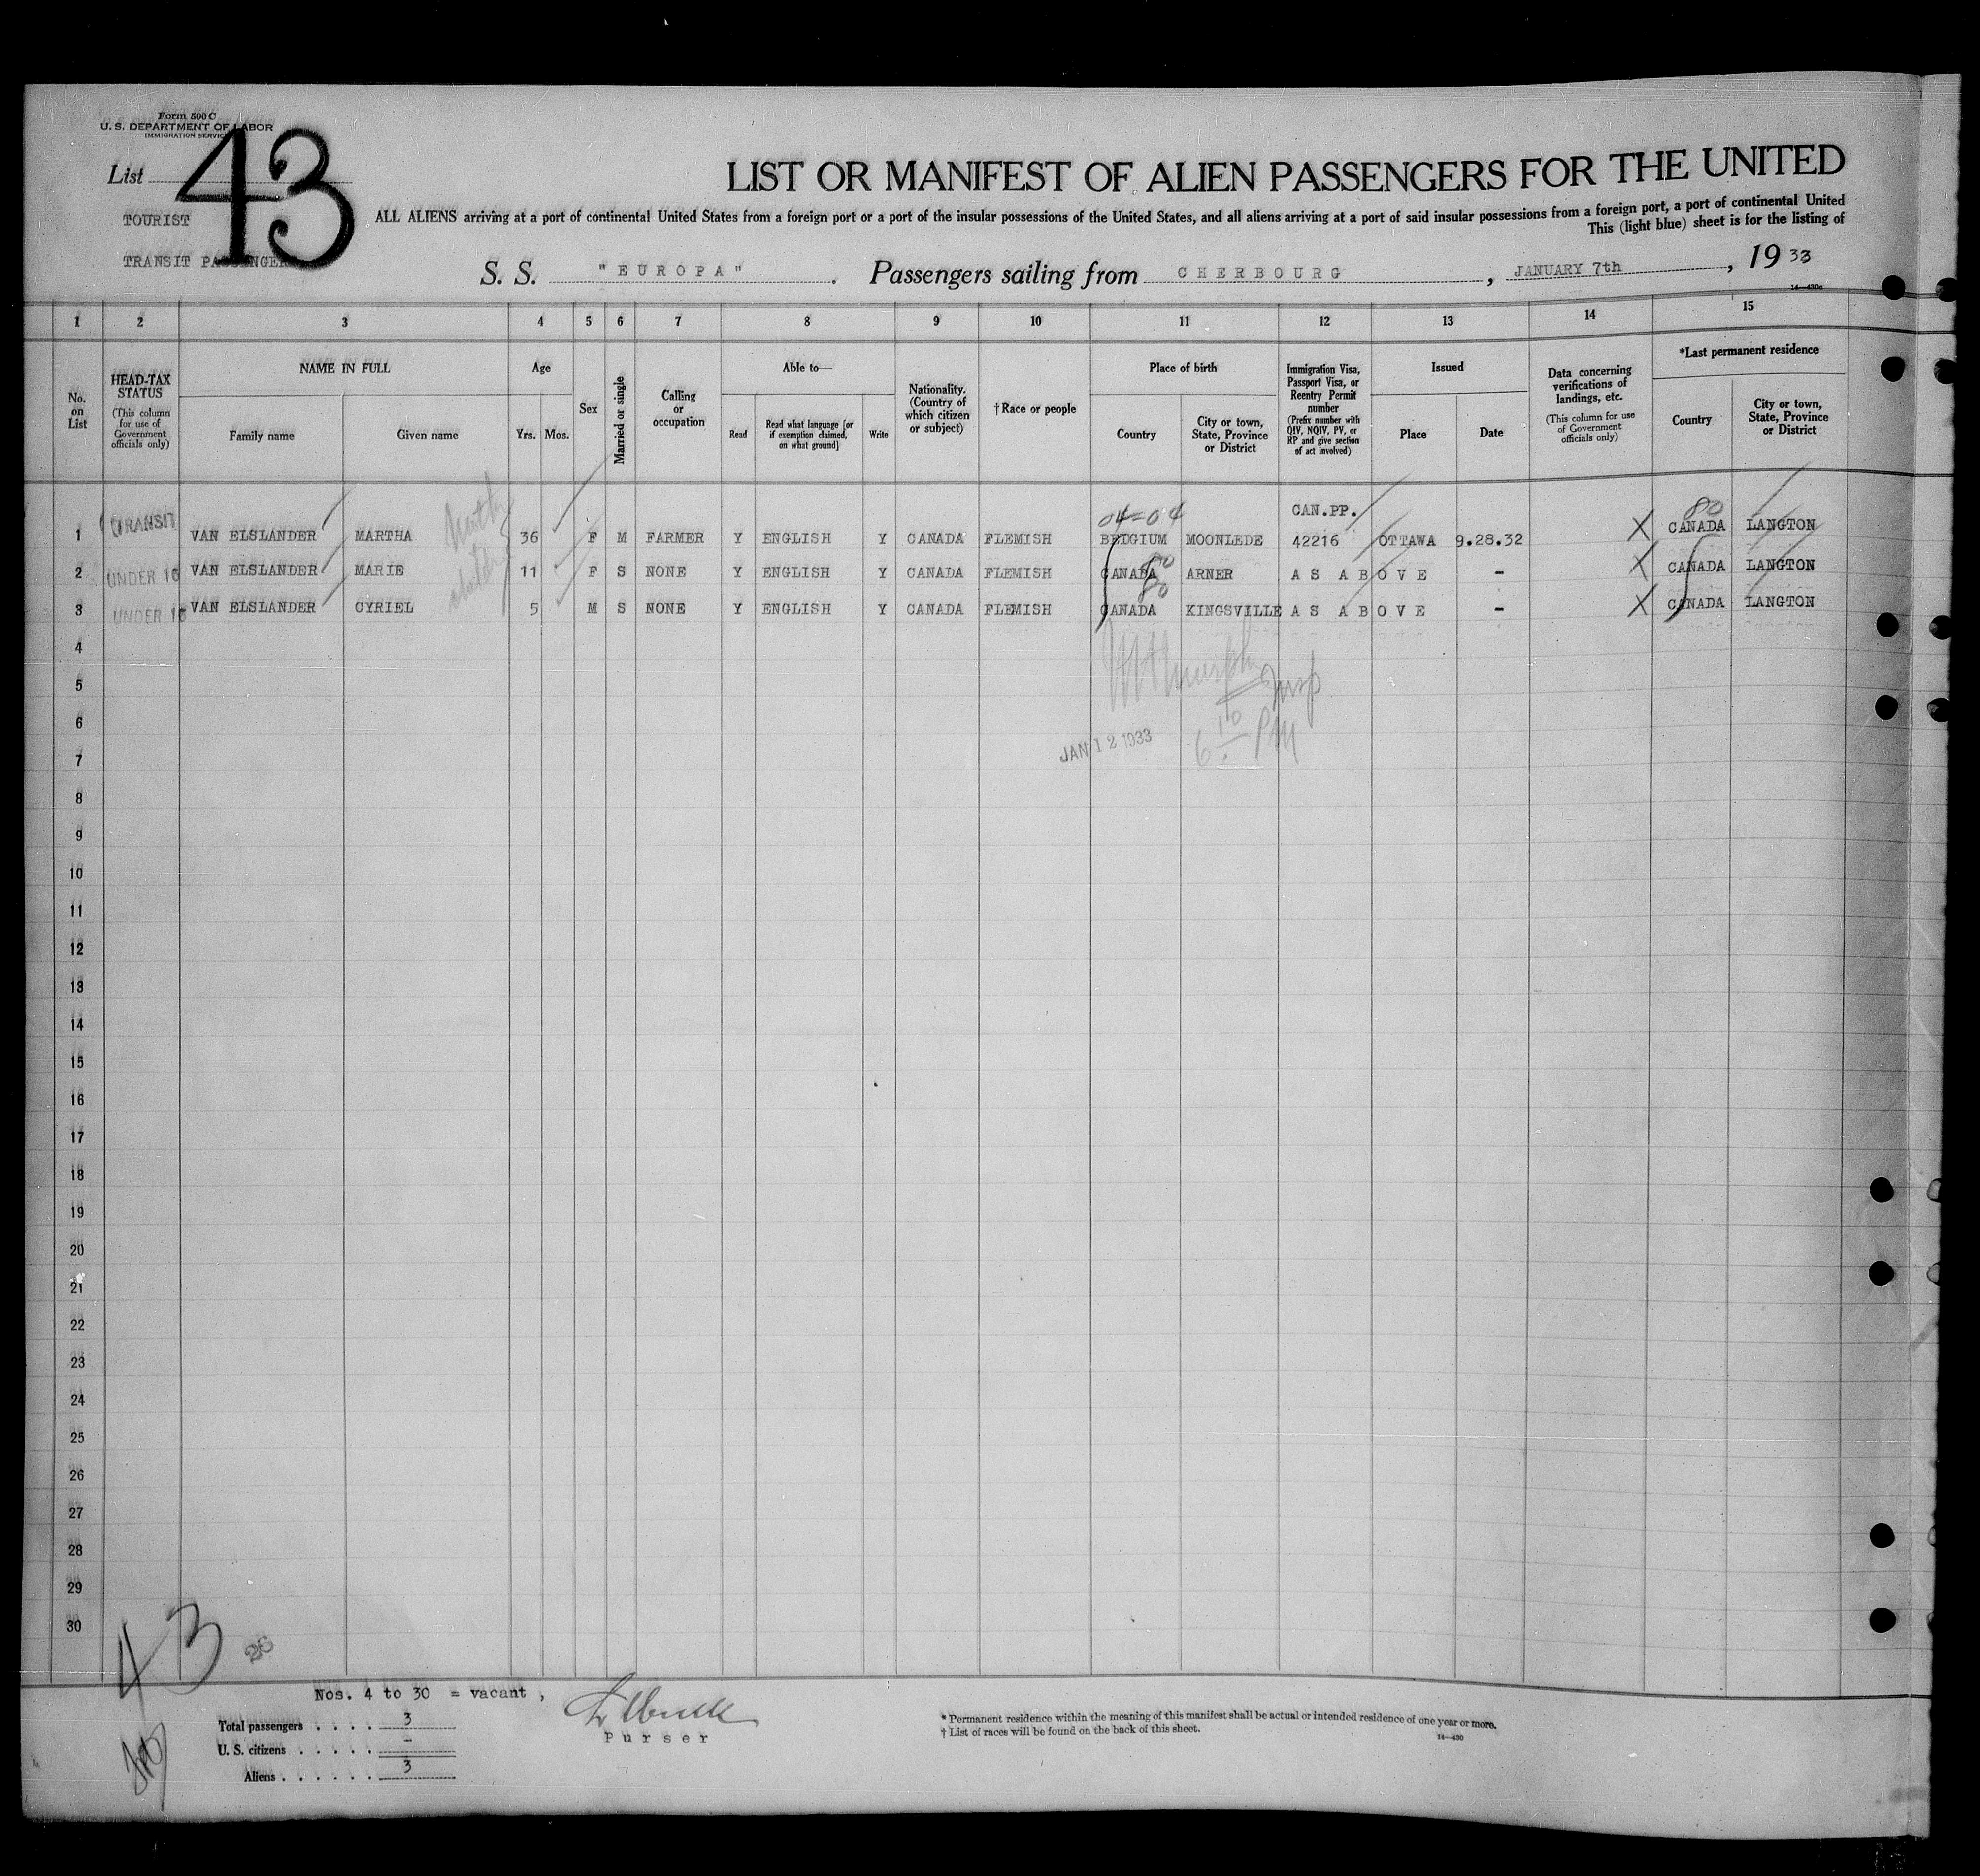 Form 500 C
U. S. DEPARTMENT OF LABOR
IMMIGRATION SERVICE
List 43
LIST OR MANIFEST OF ALIEN PASSENGERS FOR THE UNITED
TOURIST
ALL ALIENS arriving at a port of continental United States from a foreign port or a port of the insular possessions of the United States, and all aliens arriving at a port of said insular possessions from a foreign port, a port of continental United
This (light blue) sheet is for the listing of
TRANSIT PASSENGERS
S. S. "EUROPA". Passengers sailing from CHERBOURG, JANUARY 7th, 1933
14—430c
1 2 3 4 5 6 7 8 9 10 11 12 13 14 15
No. on List
HEAD-TAX STATUS (This column for use of Government officials only)
NAME IN FULL
Family name
Given name
Age
Yrs. Mos.
Sex
Married or single
Calling or occupation
Able to—
Read
Read what language [or if exemption claimed, on what ground]
Write
Nationality. (Country of which citizen or subject)
†Race or people
Place of birth
Country
City or town, State, Province or District
Immigration Visa, Passport Visa, or Reentry Permit number (Prefix number with QIV, NQIV, PV, or RP and give section of act involved)
Issued
Place
Date
Data concerning verifications of landings, etc. (This column for use of Government officials only)
*Last permanent residence
Country
City or town, State, Province or District
04-04 CAN.PP. 80
1 TRANSIT VAN ELSLANDER MARTHA 36 F M FARMER Y ENGLISH Y CANADA FLEMISH BELGIUM MOONLEDE 42216 OTTAWA 9.28.32 X CANADA LANGTON
2 UNDER 16 VAN ELSLANDER MARIE 11 F S NONE Y ENGLISH Y CANADA FLEMISH CANADA 80 ARNER AS ABOVE - X CANADA LANGTON
3 UNDER 16 VAN ELSLANDER CYRIEL 5 M S NONE Y ENGLISH Y CANADA FLEMISH CANADA 80 KINGSVILLE AS ABOVE - X CANADA LANGTON
4
5 Murphy Insp
6
7 JAN 12 1933 6 10 PM
8
9
10
11
12
13
14
15
16
17
18
19
20
21
22
23
24
25
26
27
28
29
30
43 26
Nos. 4 to 30 = vacant,
Total passengers . . . . 3
U. S. citizens . . . . . -
Aliens . . . . . . 3
Purser
* Permanent residence within the meaning of this manifest shall be actual or intended residence of one year or more.
† List of races will be found on the back of this sheet.
14—430